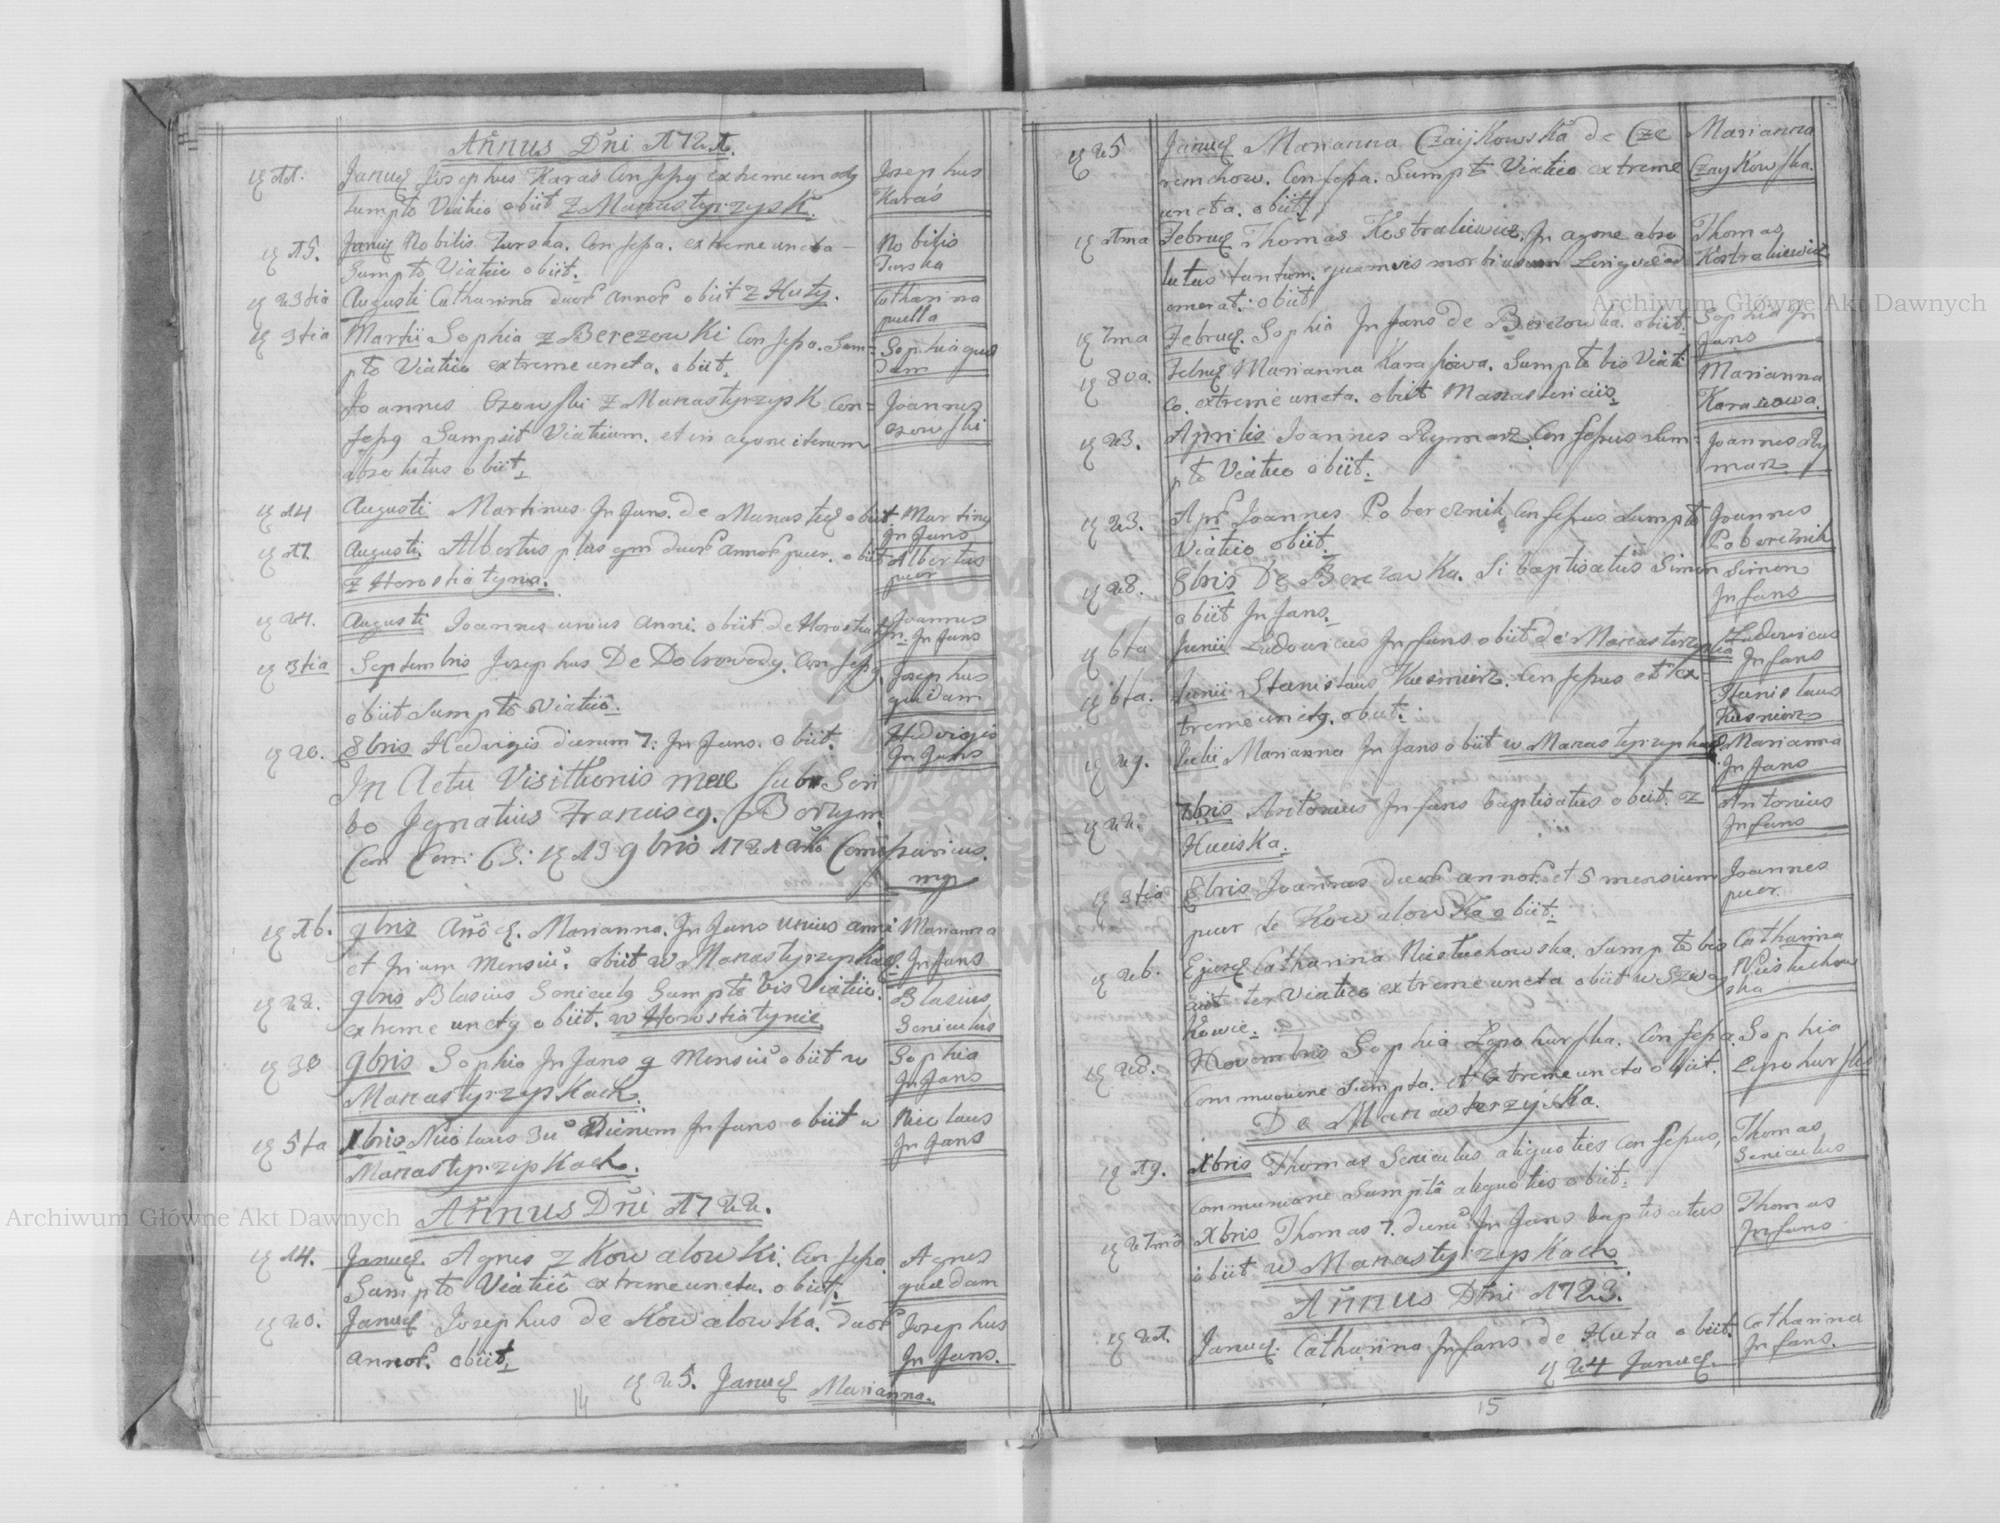 Annus Dni 1721.
11. Januar Josephus Karaś Confess extreme unctus
sumpto Viatico obiit z Manastyrzysk.
Josephus
Karaś
15. Januar Nobilis Turska. Confessa. extreme uncta
sumpto Viatico obiit.
Nobilis
Turska
23tia Augusti Catharina duor annor obiit z Huty.
Catharina
puella
3tia Martii Sophia z Berezowki Confessa. Sum=
pto Viatico extreme uncta. obiit.
Sophia quae
dam
Joannes Ozowski z Manastyrzysk Con=
fessus Sumpsit Viaticum. et in agone iterum
absolutus obiit.
Joannes
Ozowski
14 Augusti Martinus Infans. de Manaster obiit
Martinus
Infans
17. Augusti. Albertus plus quam duor annor puer. obiit
z Horoshatynia.
Albertus
puer
24. Augusti Joannes unius anni. obiit de Horoshat
Joannes
Infans
3tia Septembris Josephus De Dobrowody. Confess
obiit Sumpto Viatico.
Josephus
quidam
20. 8bris Hedvigis dierum 7. Infans. obiit.
Hedvigis
Infans
In Actu Visittonis meae Subscri
bo Ignatius Franciscus
Can 13 9bris 1721 Comissarius.
mp
16. 9bris Marianna. Infans unius anni
et trium mensiu. obiit w Manastyrzyskach.
Marianna
Infans
22. 9bris Blasius Seniculus Sumpto bis Viatico.
extreme unctus obiit. w Horoshatynie.
Blasius
Seniculus
30 9bris Sophia Infans 9 Mensiu obiit w
Manastyrzyskach.
Sophia
Infans
5ta Xbris Nicolaus Dierum Infans obiit w
Manastyrzyskach.
Nicolaus
Infans
Annus Dni 1722.
14. Januar Agnes z Kowalowki. Confessa.
Sumpto Viatico extreme uncta. obiit.
Agnes
quaedam
20. Januar Josephus de Kowalowka. duor
annor. obiit.
Josephus
Infans.
25. Januar Marianna.
14
25 Januar Marianna Czaykowska de Cze
remchow. Confessa. Sumpto Viatico extreme
uncta. obiit.
Marianna
Czaykowska.
1ma Februar Thomas Kostrakiewicz. In agone abso
lutus tantum. quamvis morbi
obiit
Thomas
Kostrakiewicz
7ma Februar. Sophia Infans de Berezowka. obiit.
Sophia In
fans
8va. Februar Marianna Karasiowa. Sumpto bis Viati
co. extreme uncta. obiit Manasterciis.
Marianna
Karasiowa.
23. Aprilis Joannes Rymarz. Confessus sum=
pto Viatico obiit.
Joannes Ry
marz
23. Apr Joannes Pobereznik Confessus Sumpto
Viatico obiit.
Joannes
Pobereznik
28. 8bris De Berezowka. Si baptisatus Simon
obiit Infans.
Simon
Infans
6ta Junii Ludovicus Infans obiit de Manasterzyska
Ludovicus
Infans
6ta. Junii Stanislaus Kusnierz. Confessus et ex=
treme unctus. obiit.
Stanislaus
Kusnierz
29. Julii Marianna Infans obiit w Manastyrzyskach.
Marianna
Infans
22. 7bris Antonius Infans baptisatus obiit. z
Huciska.
Antonius
Infans
3tia 8bris Joannes duor annor. et 5 mensium
puer de Kowalowka obiit.
Joannes
puer
26. Ejusd Catharina Niestuchowska. Sumpto bis
aut ter Viatico extreme uncta obiit w
kowie.
Catharina
Niestuchow
ska
28. Novembris Sophia Lepohurska. Confessa.
Communione sumpta. et Extreme uncta obiit.
De Manasterzyska.
Sophia
Lepohurska
19. Xbris Thomas Seniculus aliquoties Confessus,
Communione Sumptâ aliquoties obiit.
Thomas
Seniculus
27ma Xbris Thomas 7. dieru Infans baptisatus
obiit w Manastyrzyskach
Thomas
Infans
Annus Dni 1723.
21. Januar. Catharina Infans de Huta obiit.
Catharina
Infans.
24 Januar.
15
Archiwum Główne Akt Dawnych
Archiwum Główne Akt Dawnych